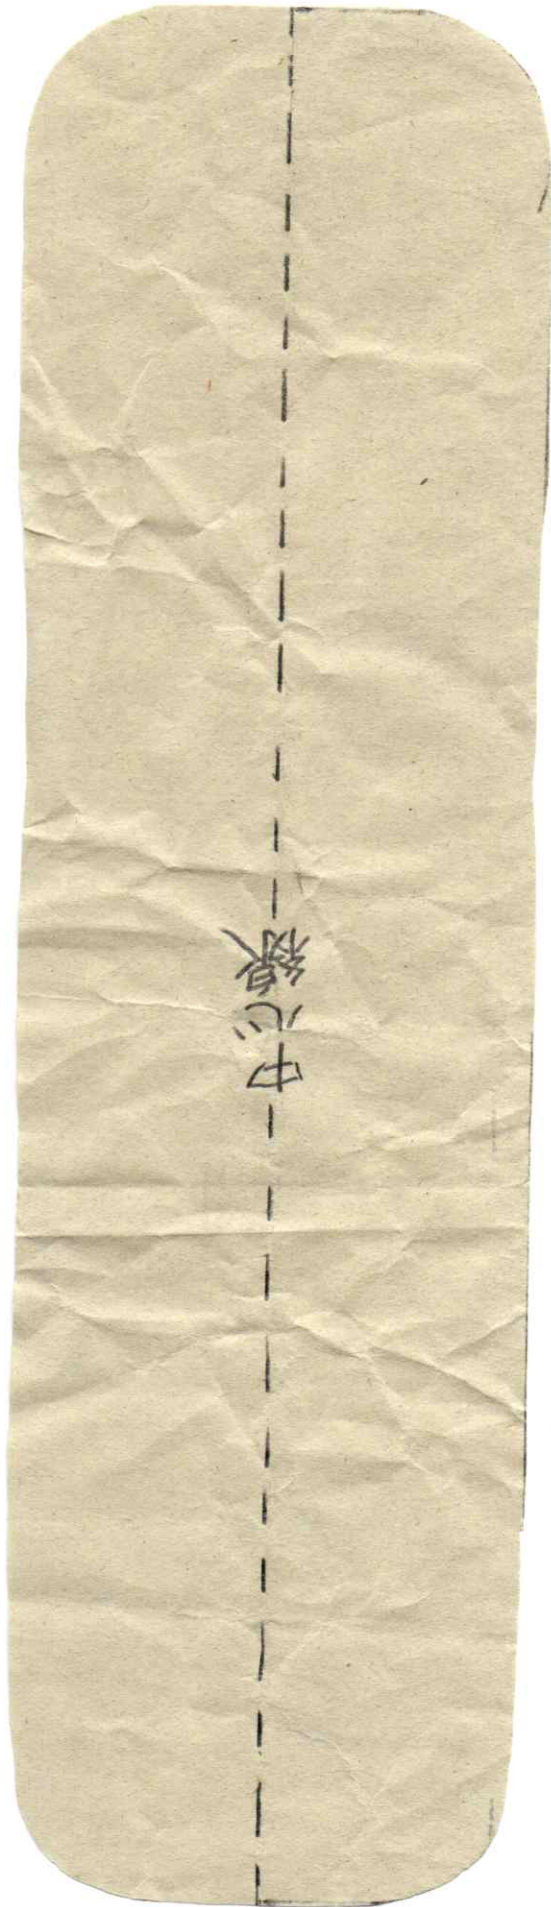 中心線